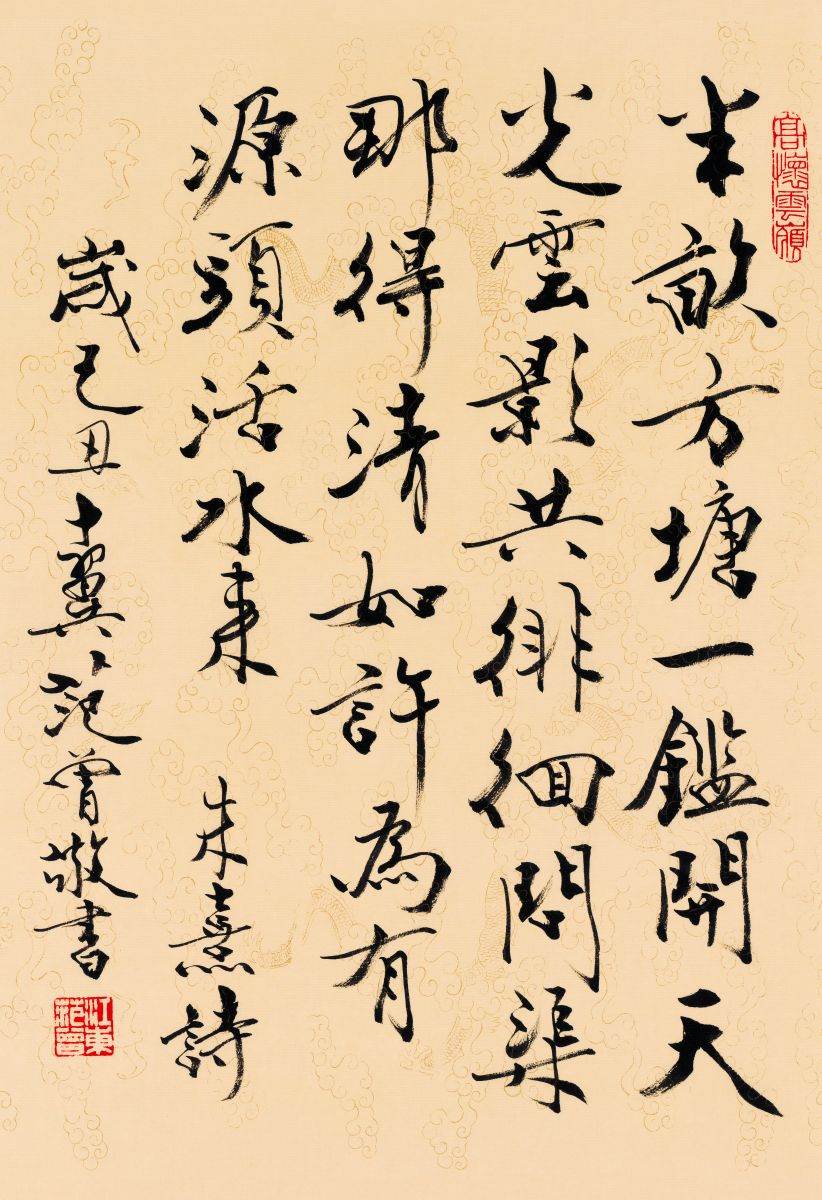 高懷雲
半畝方塘一鑑開天
光雲影共徘徊問渠
那得清如許為有
源頭活水來 朱熹詩
歲己丑十翼范曾敬書
江東范曾